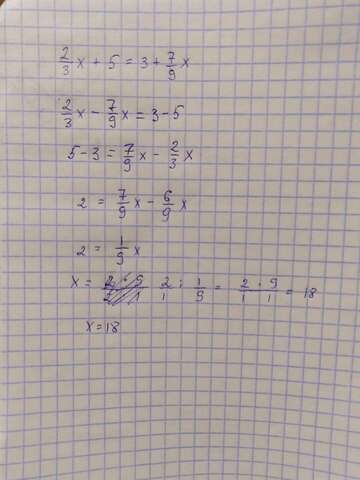 2/3 x + 5 = 3 + 7/9 x
2/3 x - 7/9 x = 3 - 5
5 - 3 = 7/9 x - 2/3 x
2 = 7/9 x - 6/9 x
2 = 1/9 x
x = 2/1 : 1/9 = 2 · 9/1 1 = 18
x = 18